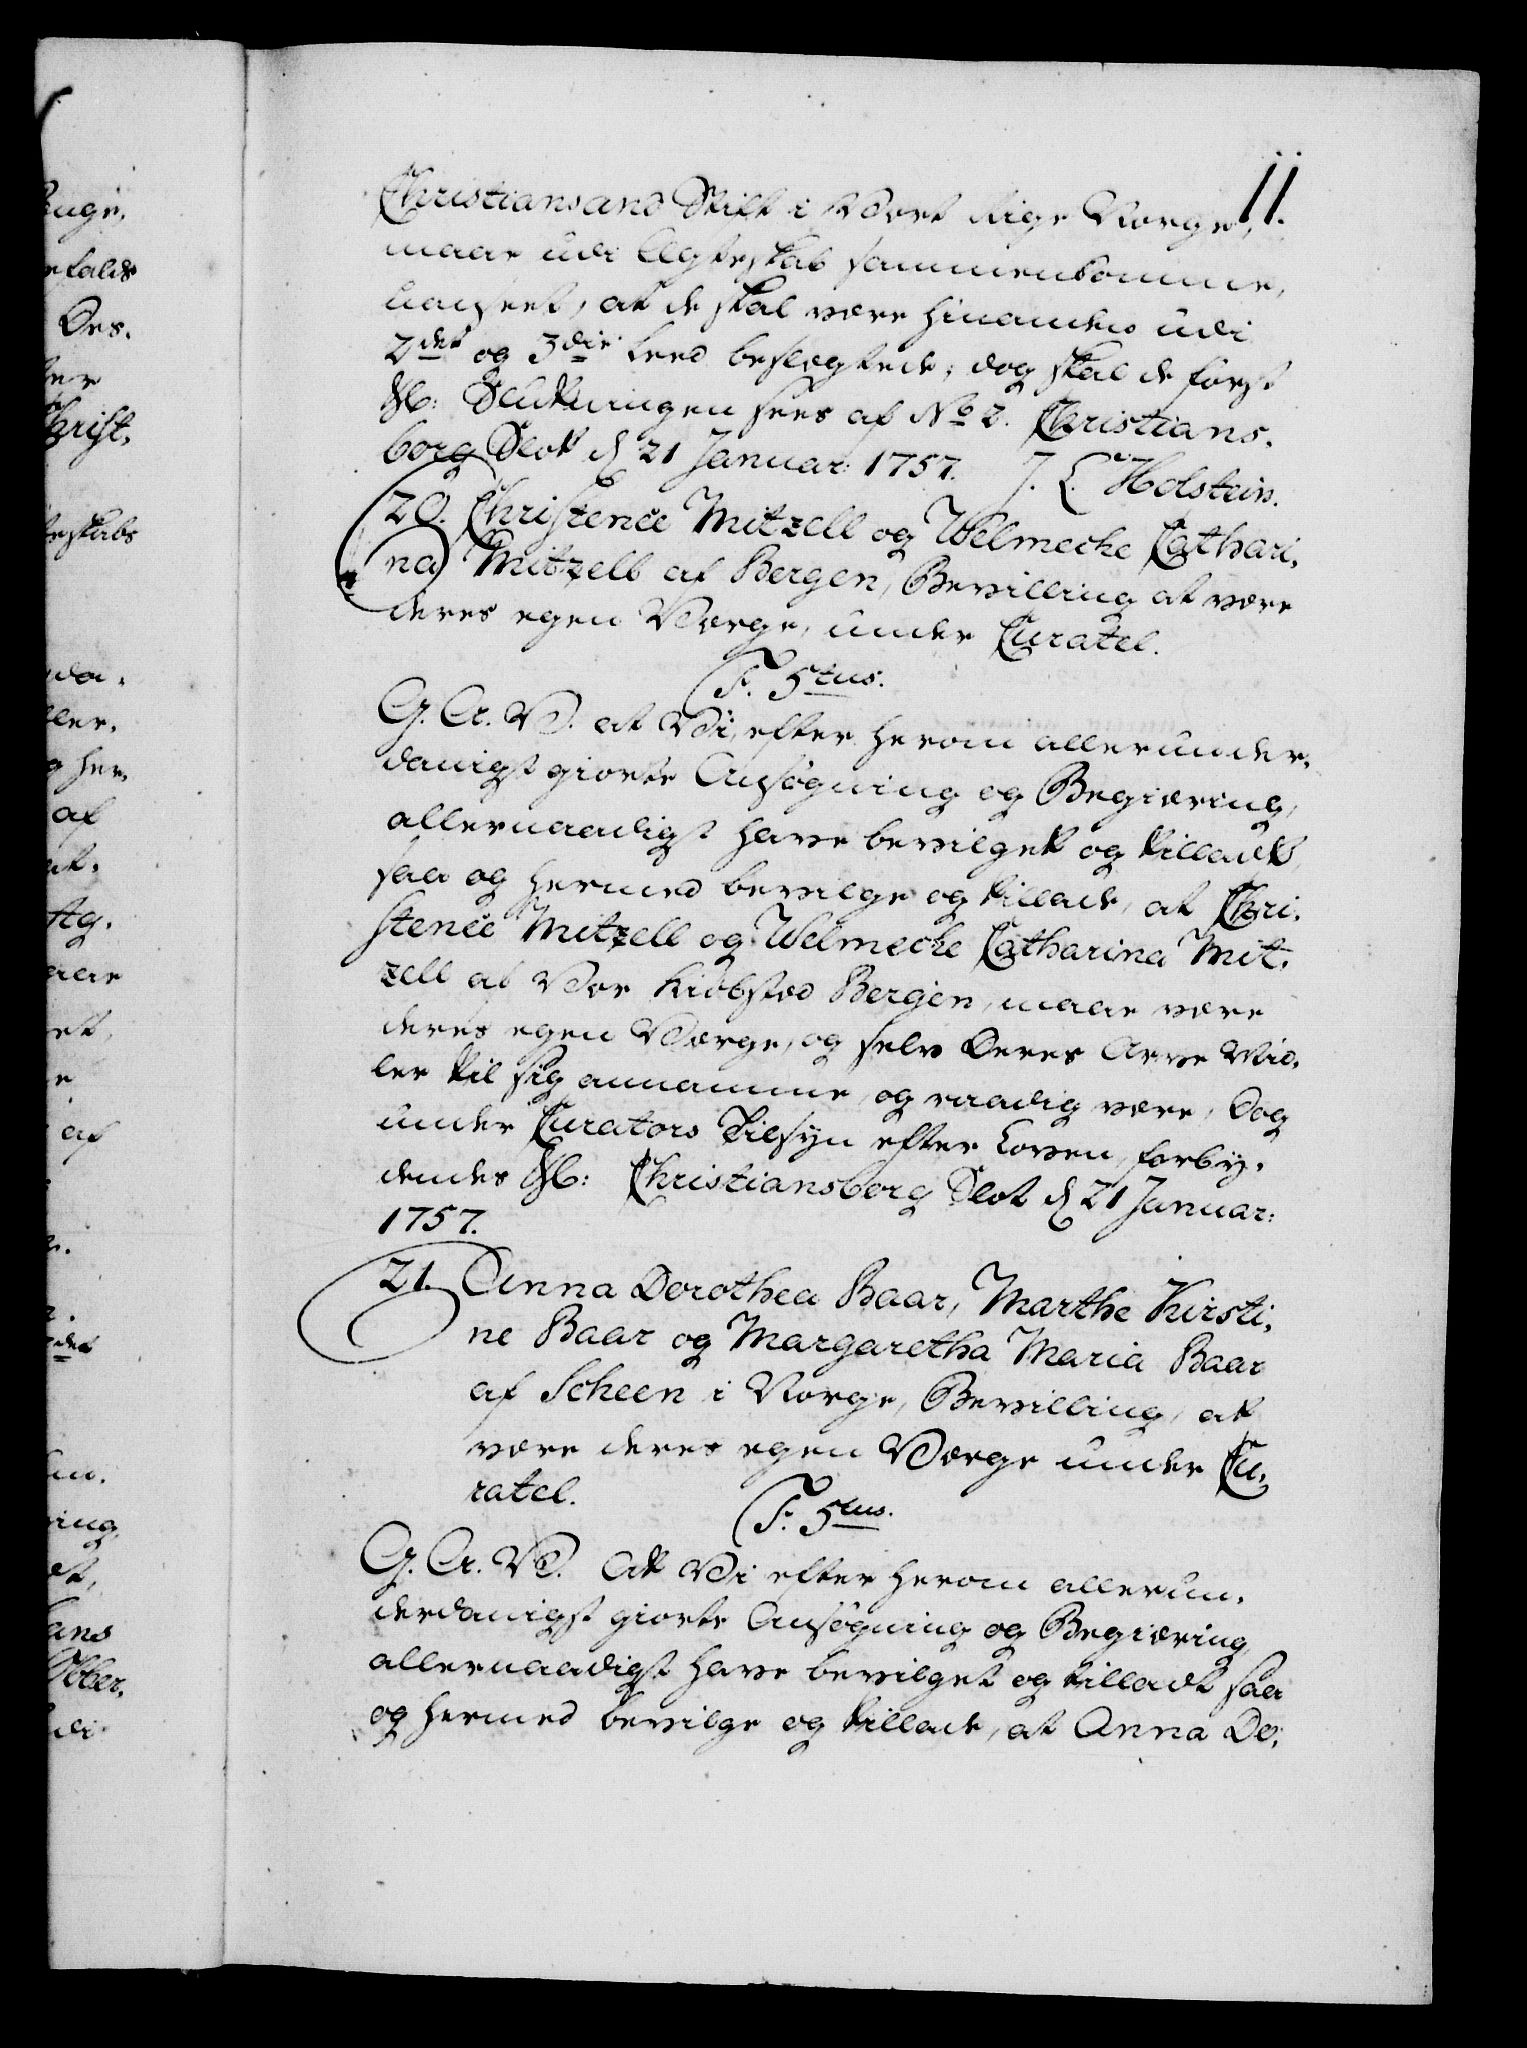 11.
Christiansand Stift i Vort Rige Norge,
maae udi Ægteskab sammenkomme,
uanseet, at de skal være hinanden udi
2det og 3die Leed beslægtede; dog skal de først
&c: Slutningen sees af No 2. Christians-
borg Slot d 21 Januar: 1757. J. L. Holstein.
20. Christence Mitzell og Welmecke Cathari-
na Mitzell af Bergen, Bevilling at være
deres egen Værge, under Curatel.
F. 5tus.
G. A. V. at Vi, efter herom allerunder-
danigst giorte Ansøgning og Begiæring,
allernaadigst have bevilget og tilladt,
saa og hermed bevilge og tillade, at Chri-
stence Mitzell og Welmecke Catharina Mit-
zell af Vor Kiøbsted Bergen, maae være
deres egen Værge, og selv Deres Arve Mid-
ler til sig annamme og raadig være, Dog
under Curators Tilsyn efter Loven, forby-
dendes &c: Christiansborg Slot d 21 Januar:
1757.
21. Anna Dorothea Baar, Marthe Kirsti-
ne Baar og Margaretha Maria Baar
af Scheen i Norge, Bevilling, at
være deres egen Værge under Cu-
ratel.
F. 5tus.
G. A. V. At Vi efter herom allerun-
derdanigst giorte Ansøgning og Begiæring,
allernaadigst have bevilget og tilladt saa
og hermed bevilge og tillade, at Anna Do-